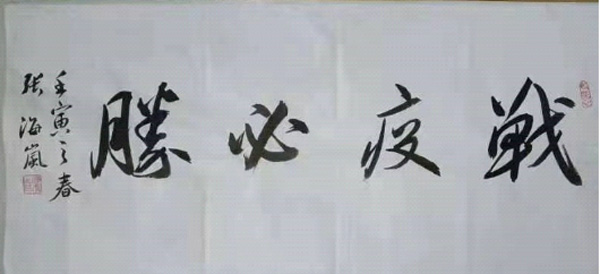 戰疫必勝
壬寅之春
張海嵐